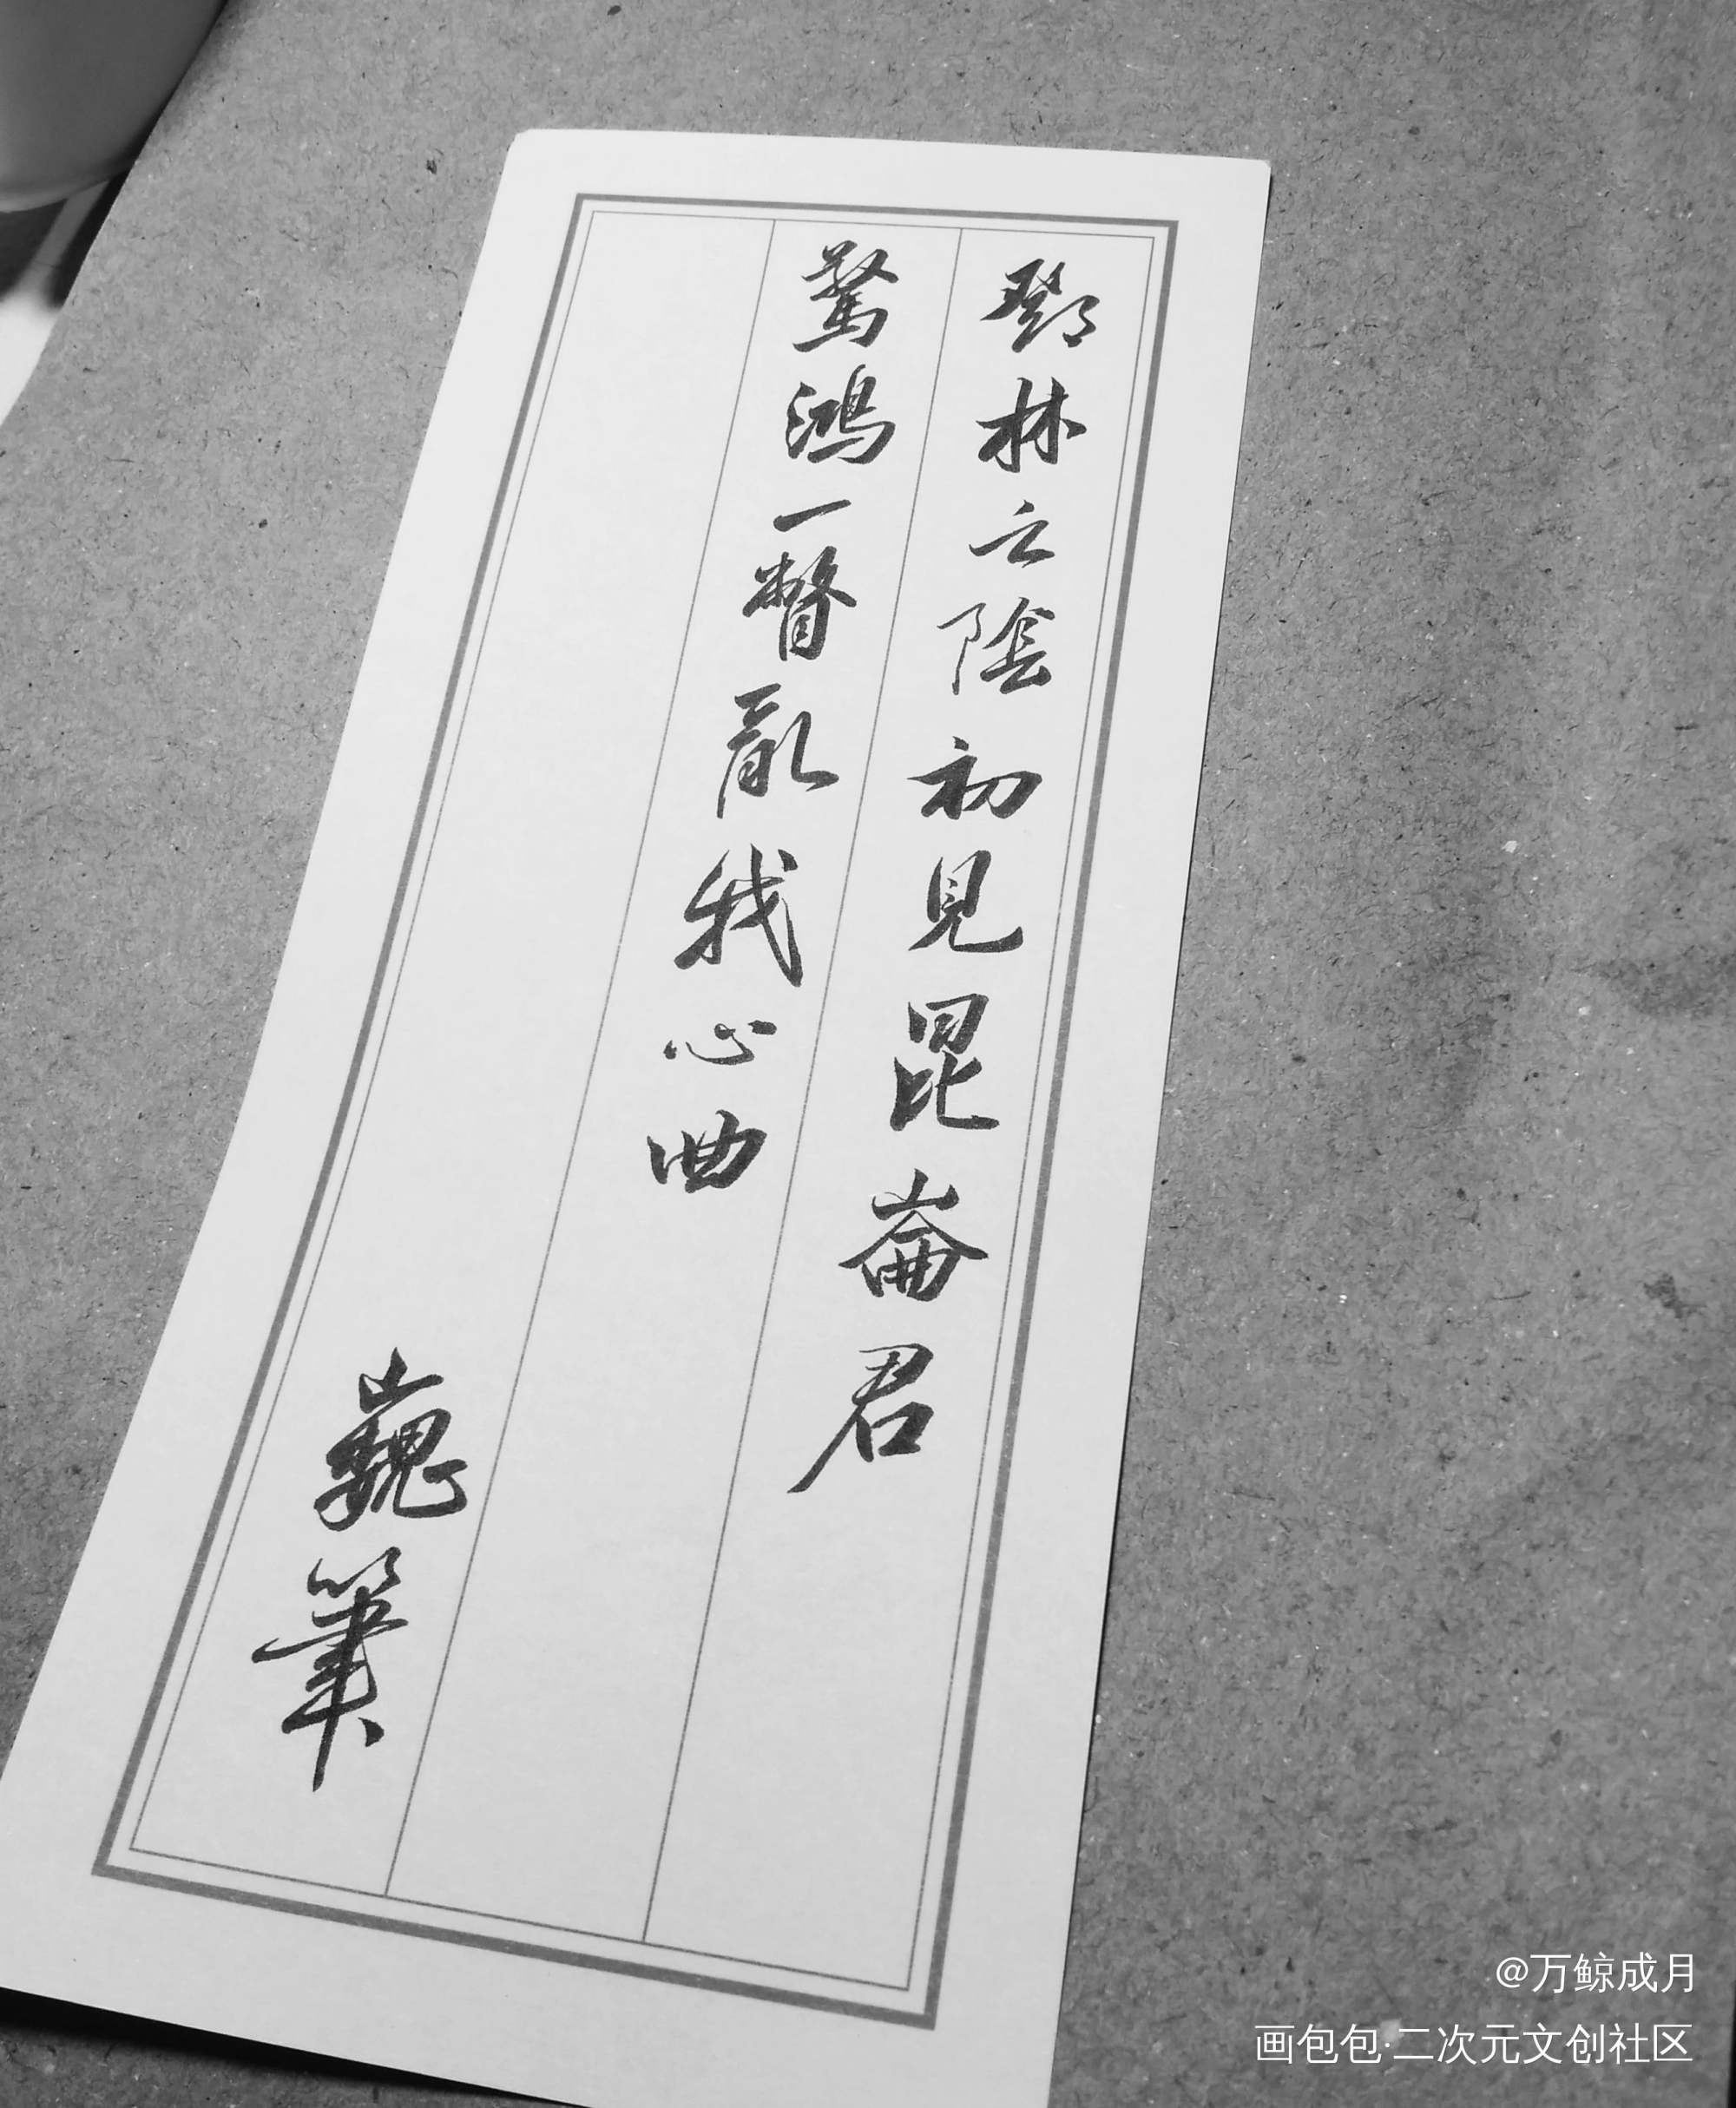 鄧林之陰初見昆侖君
驚鴻一瞥亂我心曲
巍筆
@万鲸成月
画包包·二次元文创社区